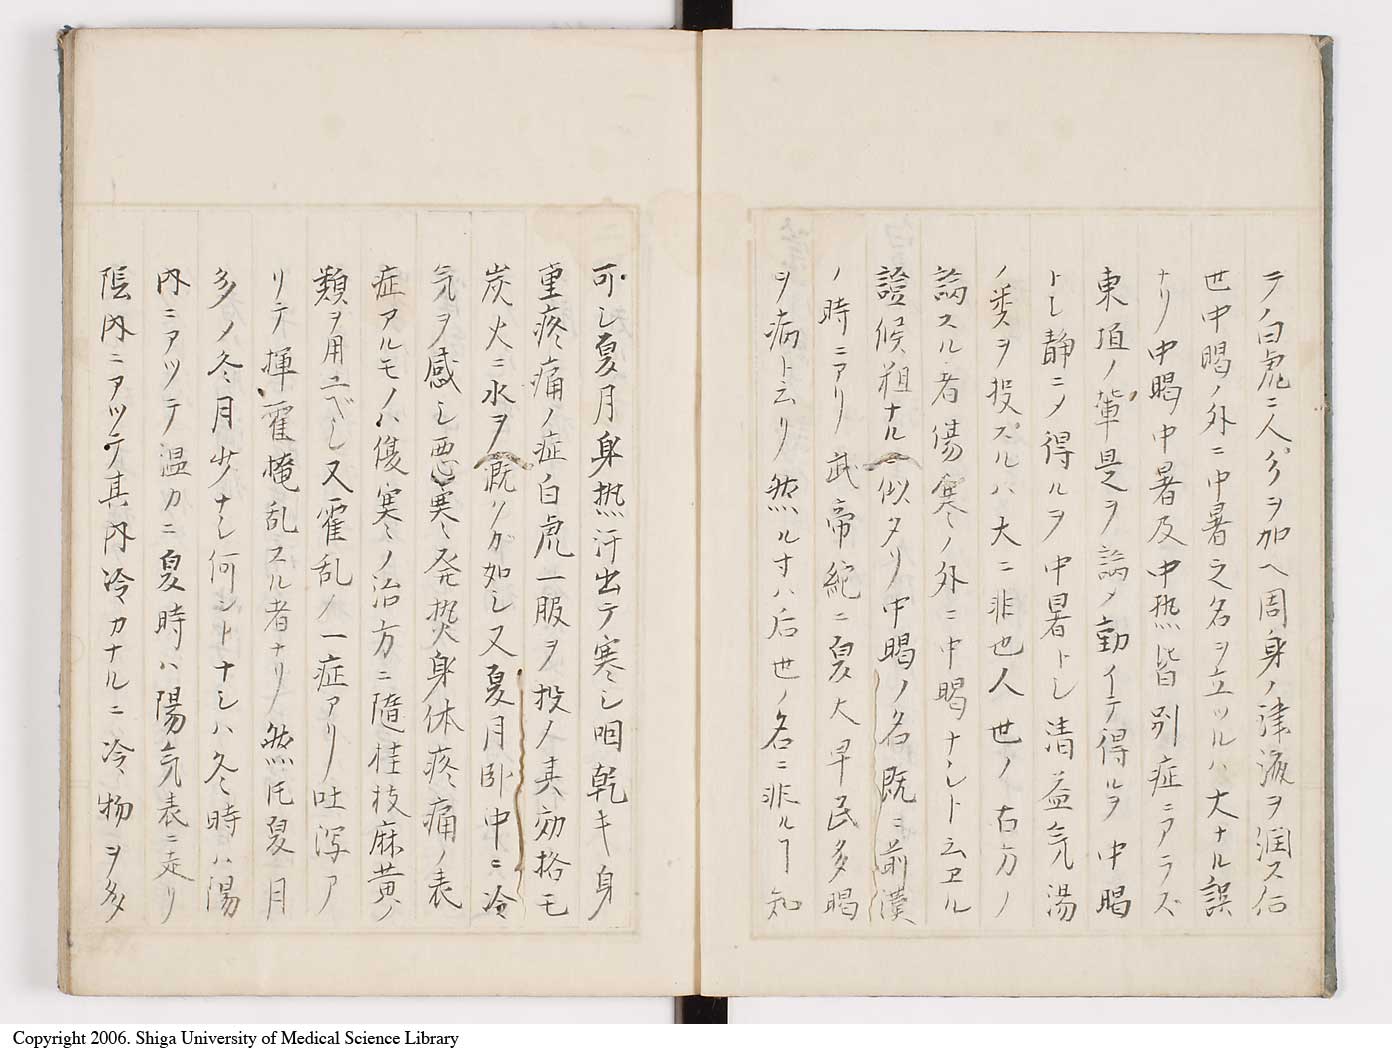 テノ白虎ニ人参ヲ加ヘ周身ノ津液ヲ潤ス后
世中暍ノ外ニ中暑之名ヲ立ツルハ大ナル誤
ナリ中暍中暑及中熱皆別症ニアラズ
東垣ノ輩是ヲ論ノ動イテ得ルヲ中暍
トし静ニノ得ルヲ中暑トし清益気湯
ノ類ヲ投スルハ大ニ非也人世ノ古方ノ
論スル者傷寒ノ外ニ中暍ナシト云ヱル
證候粗ナルニ似タリ中暍ノ名既ニ前漢
ノ時ニアリ武帝紀ニ夏大旱民多暍
ヲ病ト云リ然ルヿハ后世ノ名ニ非ルヿ知
可し夏月身热汗出テ寒し咽乾キ身
重疼痛ノ症白虎一服ヲ投ノ其効恰モ
炭火ニ水ヲ漑ツガ如し又夏月卧中ニ冷
気ヲ感し悪寒発热身体疼痛ノ表
症アルモノハ傷寒ノ治方ニ随桂枝麻黄ノ
類ヲ用ユベし又霍乱ノ一症アリ吐泻ア
リテ揮霍撩乱スル者ナリ然𪜈夏月
多ノ冬月少ナし何ントナしハ冬時ハ陽
内ニアツテ温カニ夏時ハ陽気表ニ走リ
陰内ニアツテ其内冷カナルニ冷物ヲ多
Copyright 2006. Shiga University of Medical Science Library